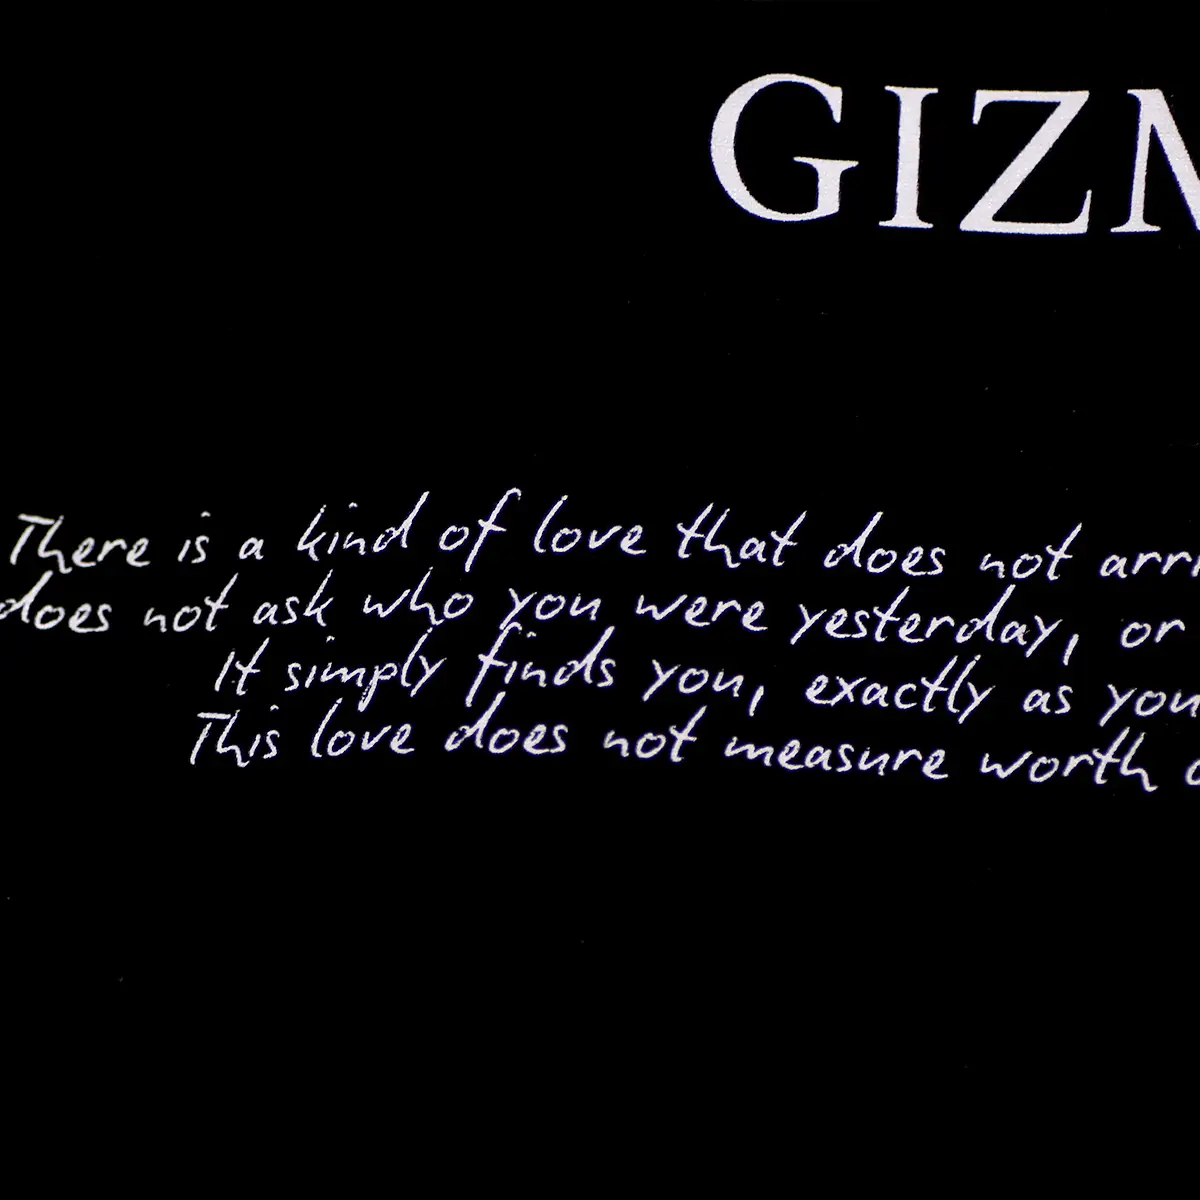 GIZM
There is a kind of love that does not arri
does not ask who you were yesterday, or
It simply finds you, exactly as you
This love does not measure worth